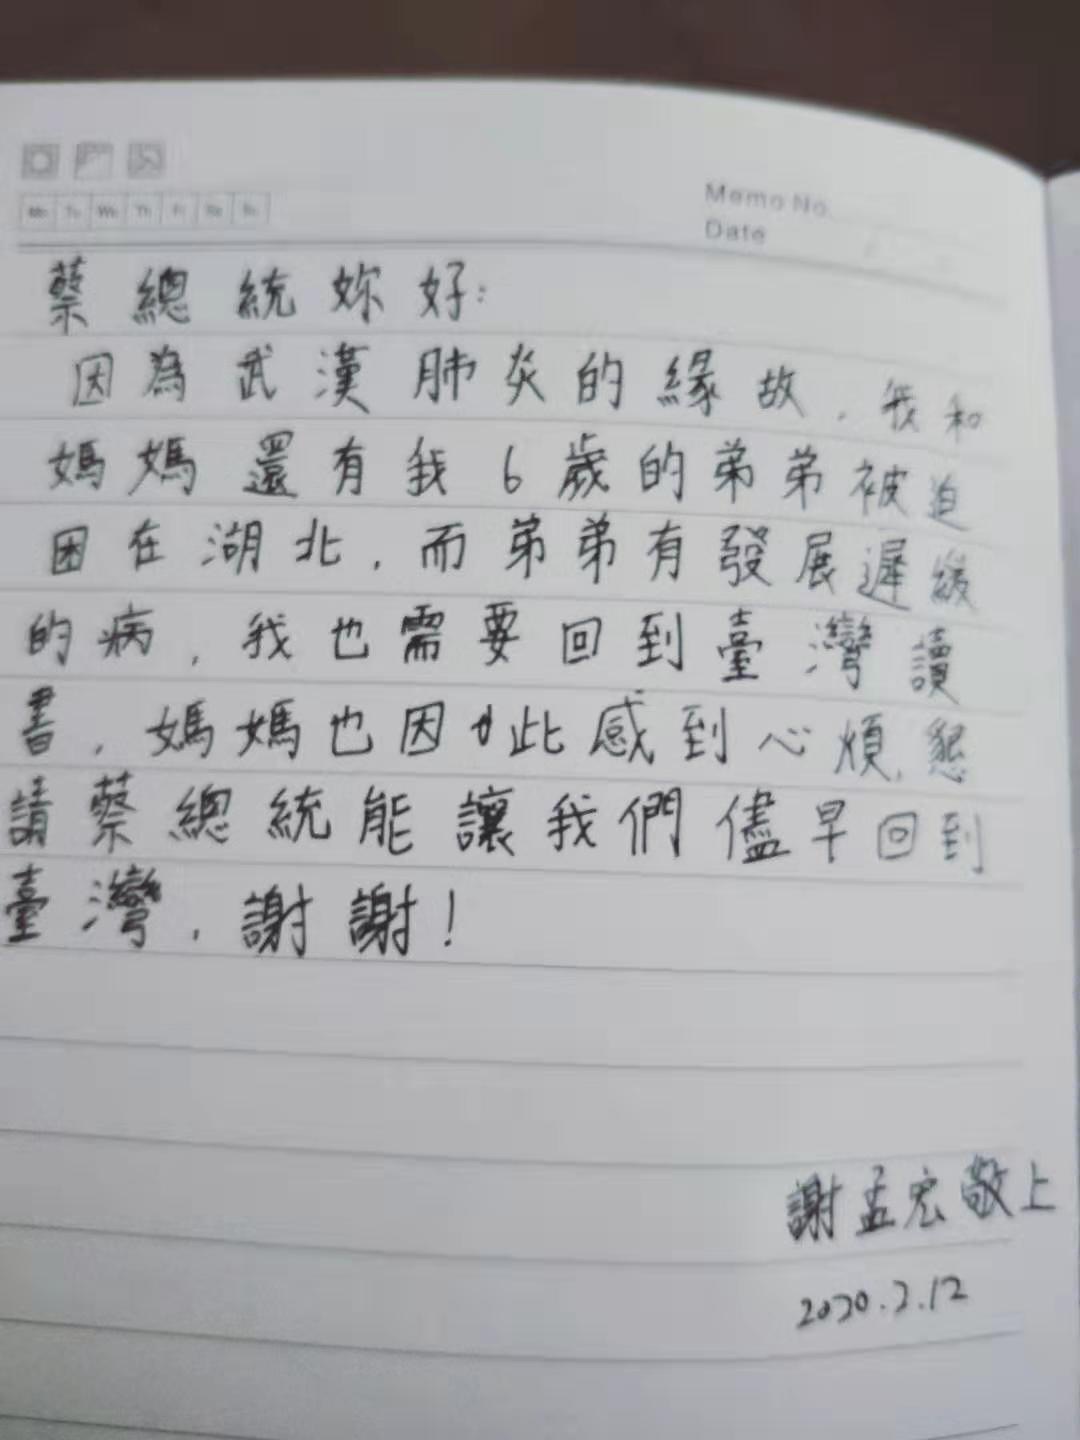 Mo Tu We Th Fr Sa Su
Memo No.
Date
蔡總統妳好：
因為武漢肺炎的緣故，我和
媽媽還有我6歲的弟弟被迫
困在湖北，而弟弟有發展遲緩
的病，我也需要回到臺灣讀
書，媽媽也因此感到心煩，懇
請蔡總統能讓我們儘早回到
臺灣，謝謝！
謝孟宏敬上
2020.2.12